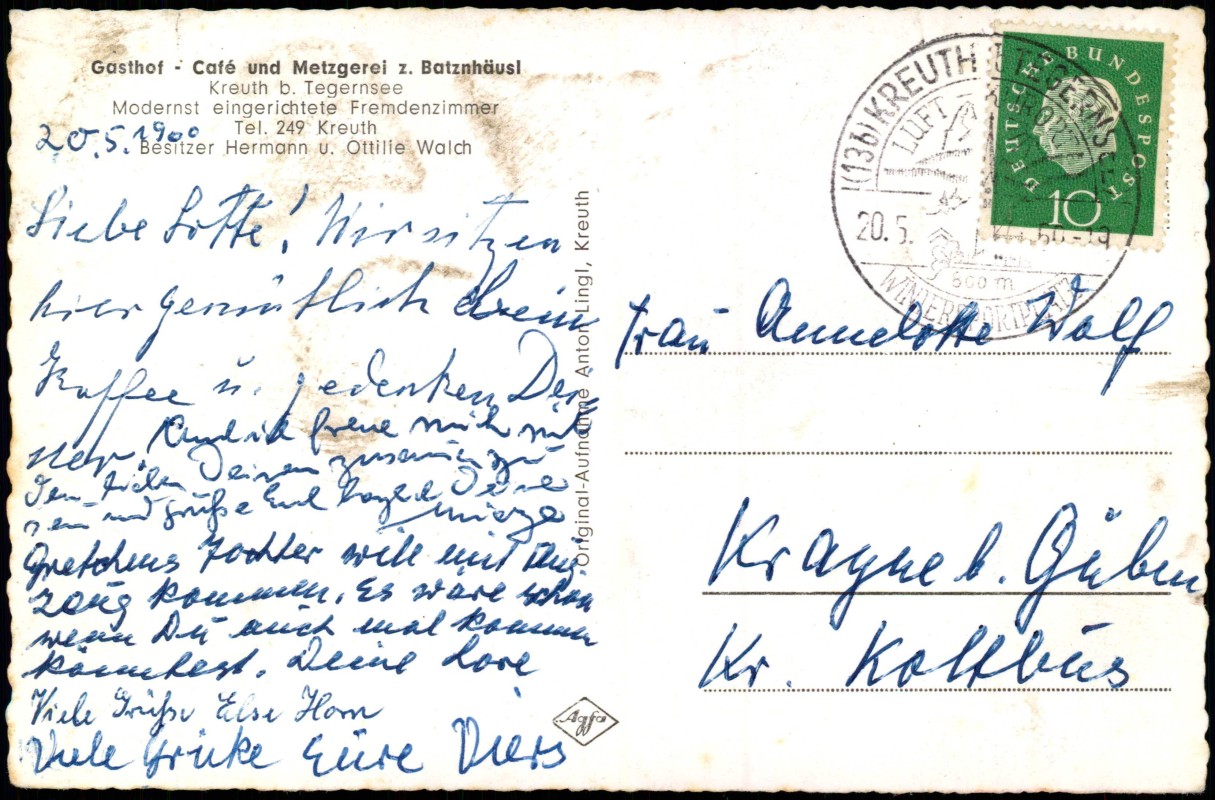 Gasthof - Café und Metzgerei z. Batznhäusl
Kreuth b. Tegernsee
Modernst eingerichtete Fremdenzimmer
Tel. 249 Kreuth
Besitzer Hermann u. Ottilie Walch
20.5.1960
Liebe Lotte! Wir sitzen
hier gemütlich beim
Kaffee u. gedenken Dei-
ner.
Auch ich freue mich mit
den lieben Deinen zusammen zu
sein und grüße Euch Deine
Gretchens Tochter will mit Um-
zaug kommen. Es wäre schön
wenn Du auch mal kommen
könntest. Deine Lore
Viele Grüße Else Horn
Viele Grüße Eure Diers
Original-Aufnahme Anton Lingl, Kreuth
Agfa
(13b) KREUTH b. TEGERNSEE
LUFT
20.5. 60-19
800 m
WINTERSPORTPLATZ
DEUTSCHE BUNDESPOST
10
Frau Annelotte Wolf
Krayne b. Güben
Kr. Kottbus